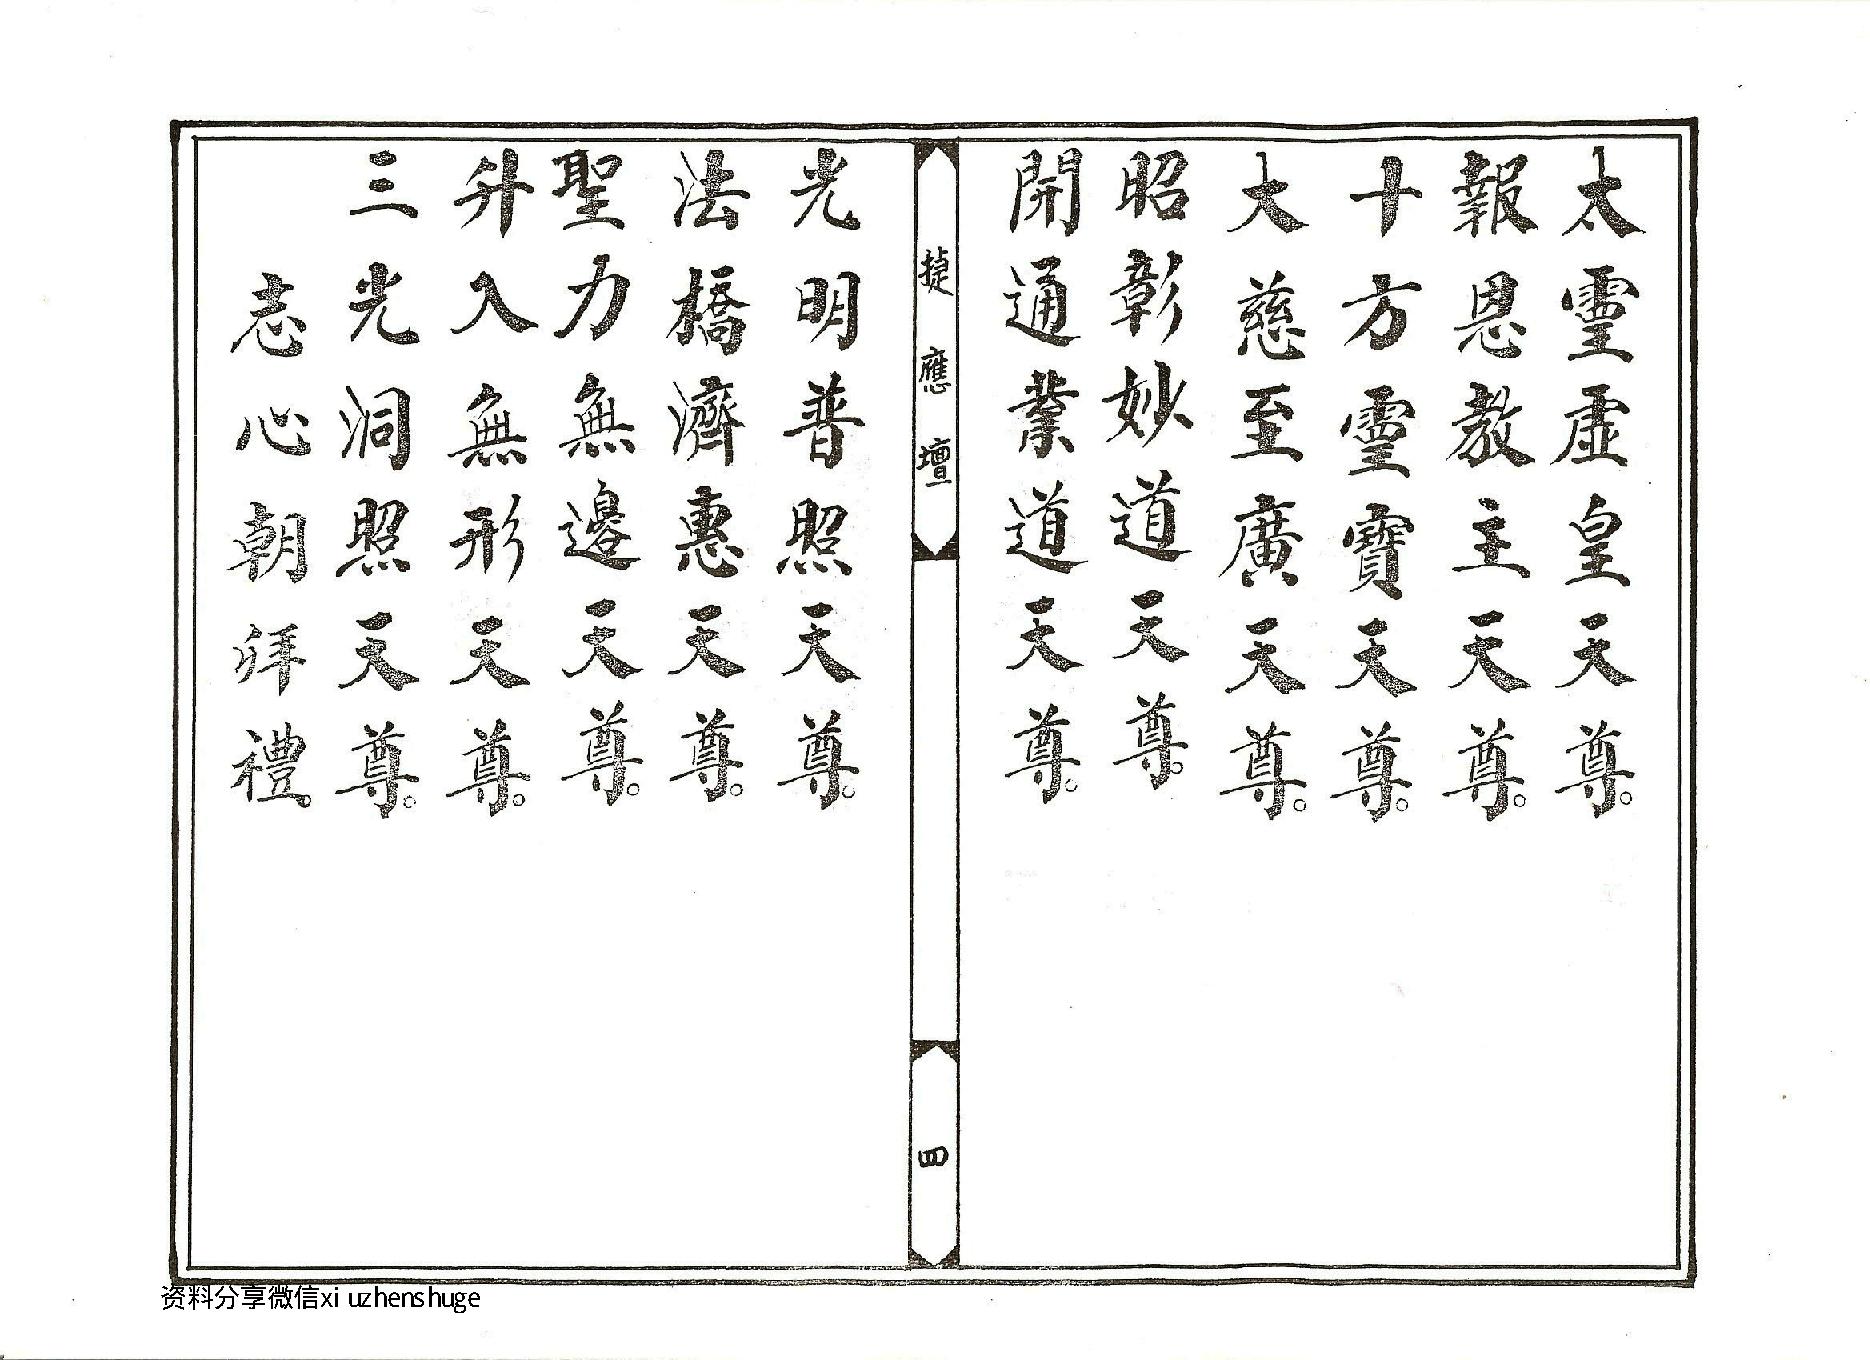 太霊虛皇天尊。
報恩教主天尊。
十方霊寶天尊。
大慈至廣天尊。
昭彰妙道天尊。
開通業道天尊。
捷應壇
四
光明普照天尊。
法橋濟惠天尊。
聖力無邊天尊。
升入無形天尊。
三光洞照天尊。
志心朝拜禮。
资料分享微信xiuzhenshuge